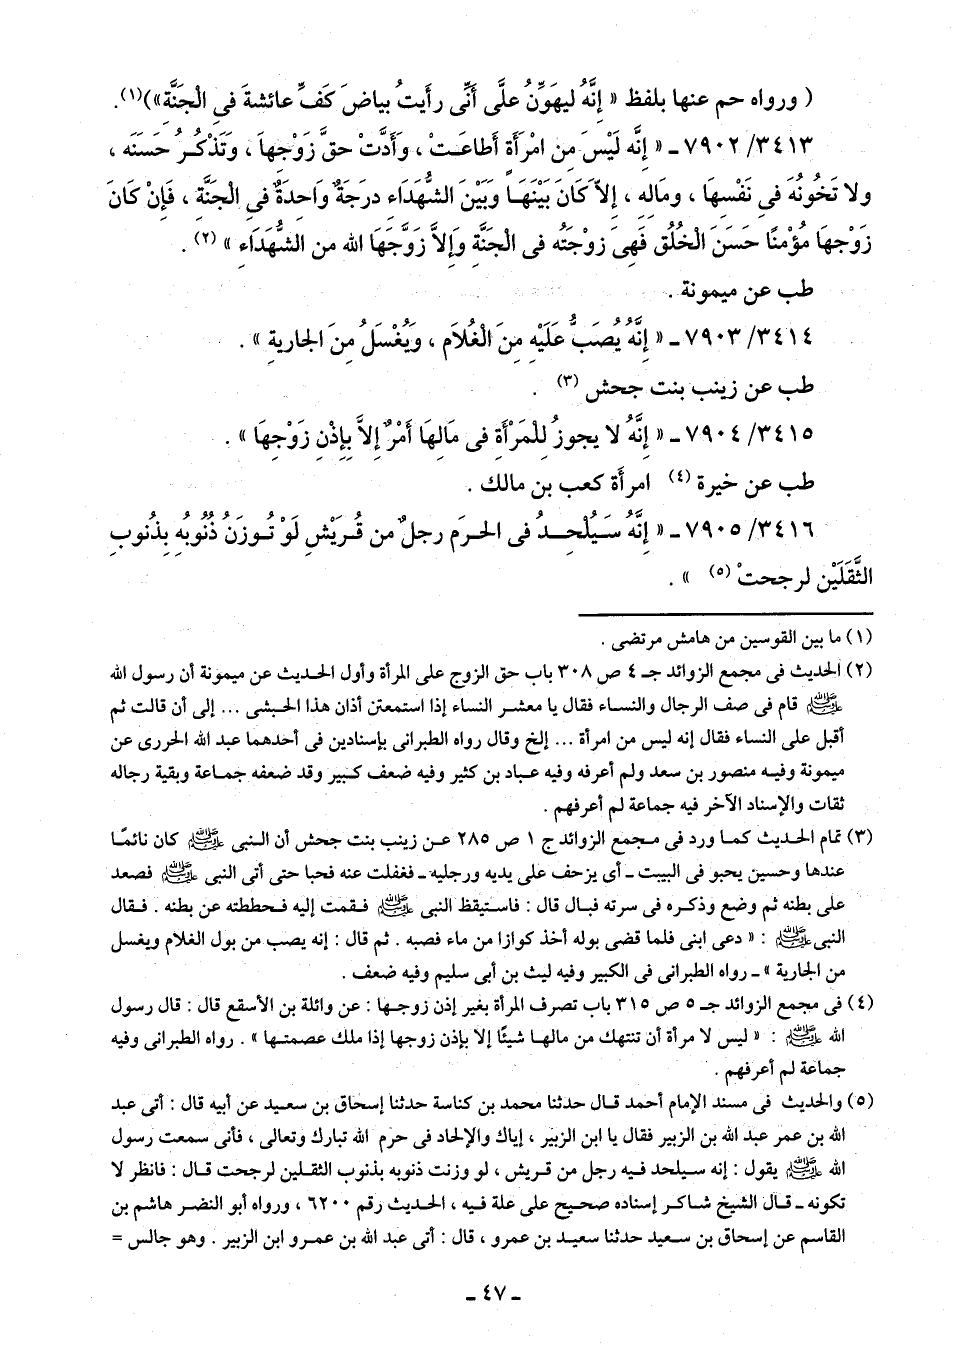 ( ورواه حم عنها بلفظ « إنَّهُ ليهَوِّنُ علَّى أَنِّى رأيتُ بياضَ كَفِّ عائشةَ فى الْجَنَّة»)(١).
٣٤١٣/ ٧٩٠٢ ـ « إنَّه لَيْسَ مِن امْرأَة أطاعَتْ ، وأَدَّتْ حقَّ زَوْجِها ، وتَذْكُرُ حَسَنَه ،
ولا تَخُونُهَ فى نَفْسِهَا ، ومَالِه ، إلاَّ كَانَ بَيْنَهَا وَبَيْنَ الشُّهَدَاءِ درجَةٌ وَاحدةٌ فى الْجَنَّة ، فَإِنْ كَانَ
زَوْجُهَا مُؤْمنًا حَسَنَ الْخُلُقِ فَهِىَ زوْجَتُه فى الْجَنَّة وَإِلاَّ زَوَّجَهَا الله من الشُّهَدَاءِ » (٢) .
طب عن ميمونة .
٣٤١٤/ ٧٩٠٣ ـ « إنَّهُ يُصَبُّ عَلَيْه مِنَ الْغُلاَمِ ، وَيُغْسَلُ مِنَ الجَارِية » .
طب عن زينب بنت جحش (٣) .
٣٤١٥/ ٧٩٠٤ ـ « إنَّهُ لا يجوزُ لِلْمَرْأَةِ فى مَالِهَا أَمْرٌ إلاَّ بِإِذْنِ زَوْجِهَا » .
طب عن خيرة (٤) امرأة كعب بن مالك .
٣٤١٦/ ٧٩٠٥ ـ « إنَّهُ سَيُلْحِدُ فى الحَرَم رجلٌ من قُرَيْشٍ لَوْ تُوزَنُ ذُنُوبُه بِذُنُوبِ
الثَّقَلَيْنِ لرجحتْ (٥) » .
(١) ما بين القوسين من هامش مرتضى .
(٢) الحديث فى مجمع الزوائد جـ ٤ ص ٣٠٨ باب حق الزوج على المرأة وأول الحديث عن ميمونة أن رسول الله
ﷺ قام فى صف الرجال والنساء فقال يا معشر النساء إذا استمعتن أذان هذا الحبشى ... إلى أن قالت ثم
أقبل على النساء فقال إنه ليس من امرأة ... إلخ وقال رواه الطبرانى بإسنادين فى أحدهما عبد الله الحررى عن
ميمونة وفيه منصور بن سعد ولم أعرفه وفيه عباد بن كثير وفيه ضعف كبير وقد ضعفه جماعة وبقية رجاله
ثقات والإسناد الآخر فيه جماعة لم أعرفهم .
(٣) تمام الحديث كما ورد فى مجمع الزوائد ج ١ ص ٢٨٥ عن زينب بنت جحش أن النبى ﷺ كان نائمًا
عندها وحسين يحبو فى البيت ـ أى يزحف على يديه ورجليه ـ فغفلت عنه فحبا حتى أتى النبى ﷺ فصعد
على بطنه ثم وضع وذكره فى سرته فبال قال : فاستيقظ النبى ﷺ فقمت إليه فحططته عن بطنه . فقال
النبى ﷺ : « دعى ابنى فلما قضى بوله أخذ كوازا من ماء فصبه . ثم قال : إنه يصب من بول الغلام ويغسل
من الجارية » ـ رواه الطبرانى فى الكبير وفيه ليث بن أبى سليم وفيه ضعف .
(٤) فى مجمع الزوائد جـ ٥ ص ٣١٥ باب تصرف المرأة بغير إذن زوجها : عن واثلة بن الأسقع قال : قال رسول
الله ﷺ : « ليس لا مرأة أن تنتهك من مالها شيئًا إلا بإذن زوجها إذا ملك عصمتها » . رواه الطبرانى وفيه
جماعة لم أعرفهم .
(٥) والحديث فى مسند الإمام أحمد قال حدثنا محمد بن كناسة حدثنا إسحاق بن سعيد عن أبيه قال : أتى عبد
الله بن عمر عبد الله بن الزبير فقال يا ابن الزبير ، إياك والإلحاد فى حرم الله تبارك وتعالى ، فأنى سمعت رسول
الله ﷺ يقول : إنه سيلحد فيه رجل من قريش ، لو وزنت ذنوبه بذنوب الثقلين لرجحت قال : فانظر لا
تكونه ـ قال الشيخ شاكر إسناده صحيح على علة فيه ، الحديث رقم ٦٢٠٠ ، ورواه أبو النضر هاشم بن
القاسم عن إسحاق بن سعيد حدثنا سعيد بن عمرو ، قال : أتى عبد الله بن عمرو ابن الزبير . وهو جالس =
ـ ٤٧ ـ